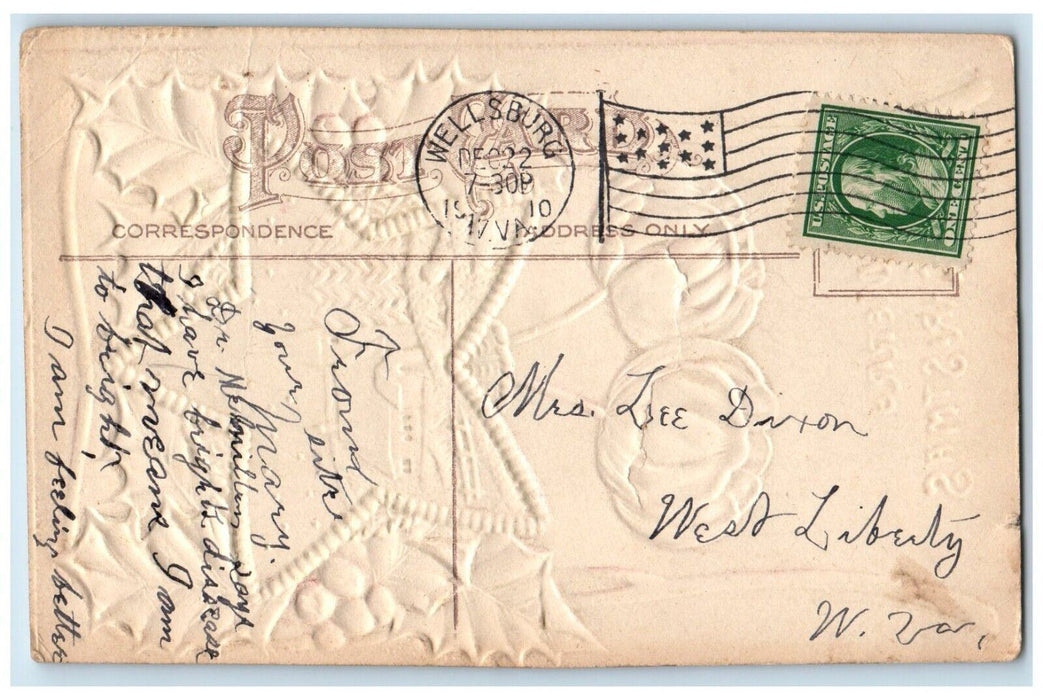 POST CARD
WELLSBURG
DEC 22
7-30P
1910
W.VA.
U.S. POSTAGE
ONE CENT
CORRESPONDENCE
ADDRESS ONLY
From
your sister
Mary.
Dr. says
I have brights disease
that means I am
to bright.
I am feeling better
Mrs. Lee Dixon
West Liberty
W. Va.